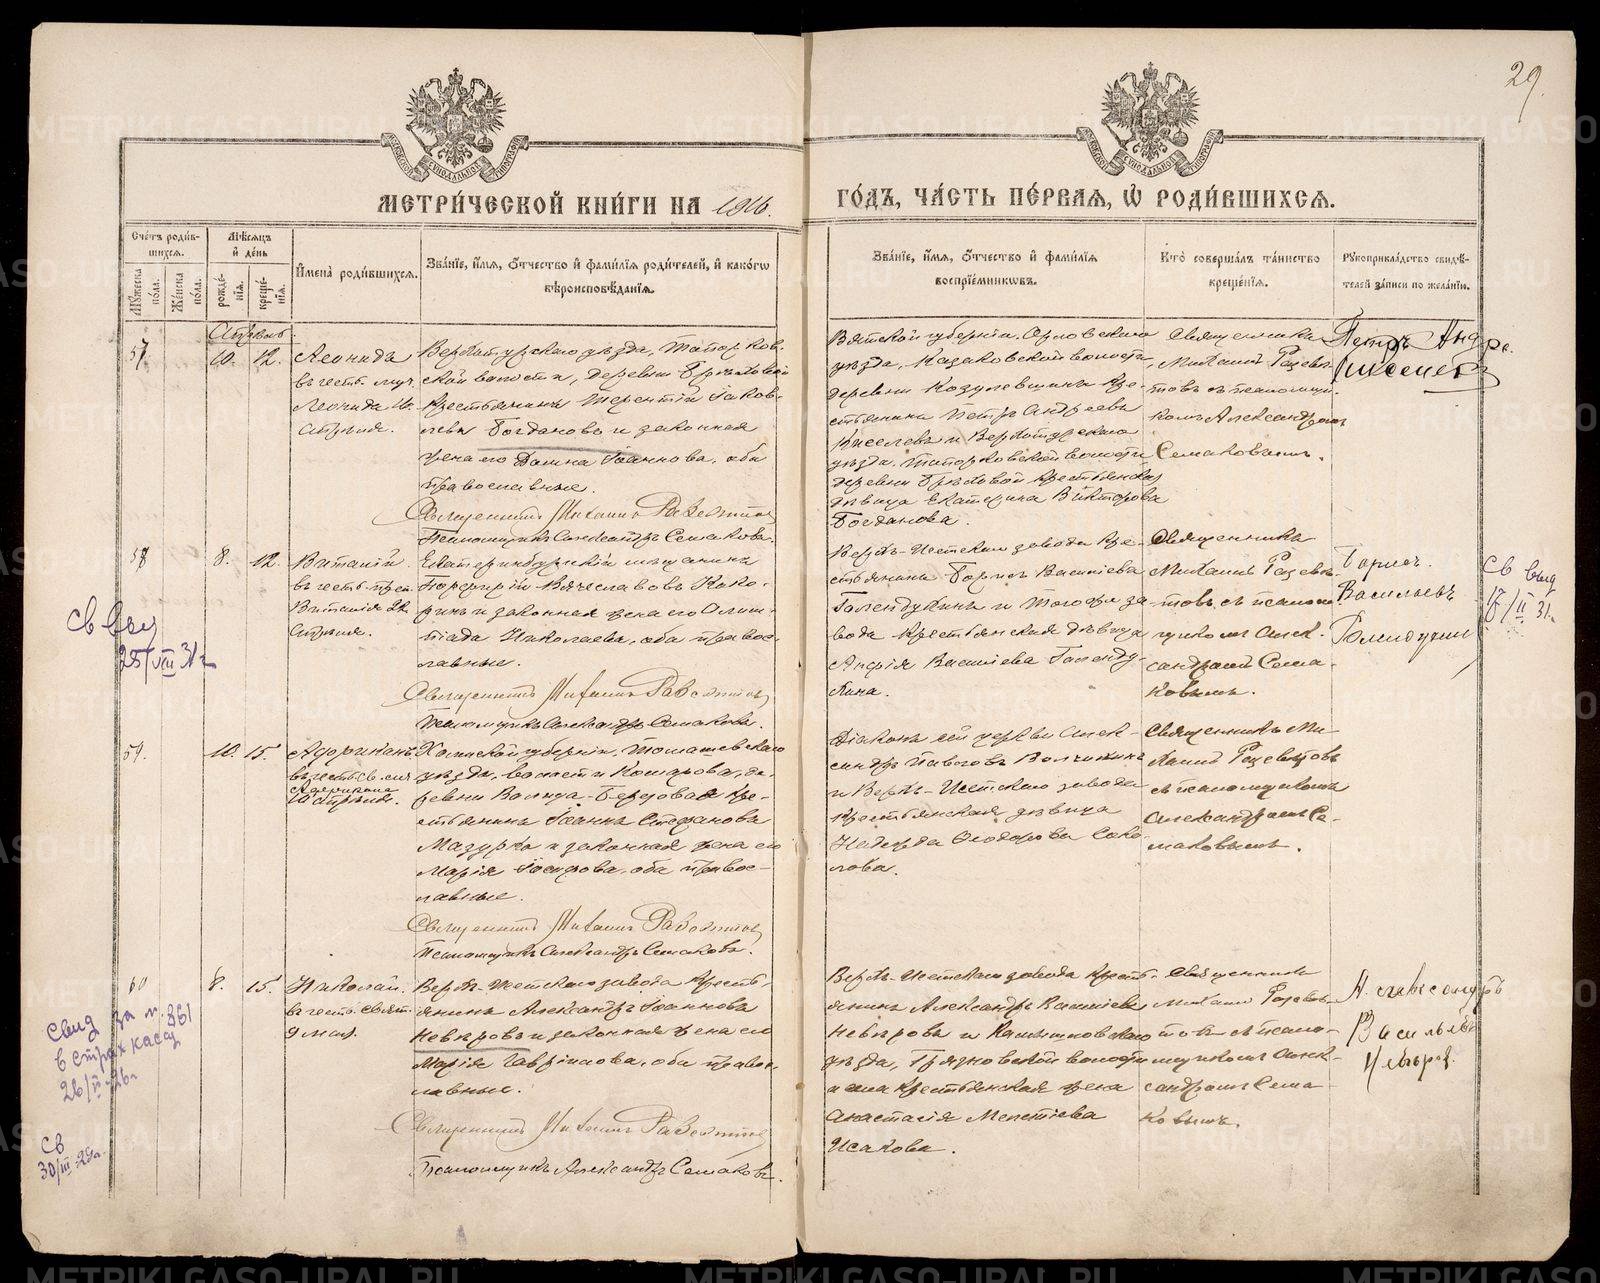 29.
МЕТРИ́ЧЕСКОЙ КНИ́ГИ НА 1916.
ГО́ДЪ, ЧА́СТЬ ПЕ́РВАѦ, Ѡ҆ РОДИ́ВШИХСѦ.
Сче́тъ роди́в-
шихсѧ.
Мꙋ́жеска по́ла.
Же́нска по́ла.
Мѣ́сѧцъ и҆ де́нь
рожде́-
нїѧ.
креще́-
нїѧ.
И҆мена̀ роди́вшихсѧ.
Зва́нїе, и҆́мѧ, ѻ҆́тчество и҆ фами́лїѧ роди́телей, и҆ како́гѡ
вѣроисповѣ́данїѧ.
Зва́нїе, и҆́мѧ, ѻ҆́тчество и҆ фами́лїѧ
воспрїе́мникѡвъ.
Кто̀ соверша́лъ та́инство
креще́нїѧ.
Рꙋкоприкла́дство свидѣ́-
телей за́писи по жела́нїю.
Апрѣль
57. 10. 12. Леонидъ
въ честь муч.
Леонида
Апрѣля.
Верхотурскаго уѣзда, Топорков-
ской волости, деревни
крестьянинъ Терентій Іаков-
левъ Богдановъ и законная
жена его Іоаннова, оба
православные.
Священникъ Михаилъ
Псаломщикъ Александръ Семаковъ.
Вятской губерніи, Орловскаго
уѣзда, Казаковской волости,
деревни кре-
стьянинъ Петръ Андреевъ
Киселевъ и Верхотурскаго
уѣзда, Топорковской волости
деревни крестьянская
дѣвица Екатерина Викторова
Богданова.
Священникъ
Михаилъ
съ псаломщи-
комъ Александромъ
Семаковымъ.
Петръ Андре.
Киселевъ
58. 8. 12. Виталій
въ честь
Виталія 22
Апрѣля.
Екатеринбургскій мѣщанинъ
Порфирій Вячеславовъ Коко-
ринъ и законная жена его Олим-
піада Николаева, оба правос-
лавные.
Священникъ Михаилъ
Псаломщикъ Александръ Семаковъ.
Верхъ-Исетскаго завода кре-
стьянинъ Борисъ Васильевъ
Голендухинъ и того же за-
вода крестьянская дѣвица
Анфія Васильева Голенду-
хина.
Священникъ
Михаилъ
съ псалом-
щикомъ Алек-
сандромъ Сема-
ковымъ.
Борисъ
Васильевъ
Голендухинъ
Св выд
25/VIII 31 г
Св выд
/II 31г.
59. 10. 15. Адріанъ
въ честь св. муч.
Адріана
Апрѣля.
Холмской губерніи, Томашевскаго
уѣзда, волости Комарова, де-
ревни кре-
стьянинъ Іоаннъ Стефановъ
Мазурко и законная жена его
Марія Іосифова, оба правос-
лавные.
Священникъ Михаилъ
Псаломщикъ Александръ Семаковъ.
Діаконъ сей церкви Алек-
сандръ Павловъ
и Верхъ-Исетскаго завода
крестьянская дѣвица
Надежда Ѳеодорова Соко-
лова.
Священникъ Ми-
хаилъ
съ псаломщикомъ
Александромъ Се-
маковымъ.
60 8. 15. Николай.
въ честь Свят.
9 мая.
Верхъ-Исетскаго завода кресть-
янинъ Александръ Іоанновъ
Невѣровъ и законная жена его
Марія Гавріилова, оба правос-
лавные.
Священникъ Михаилъ
Псаломщикъ Александръ Семаковъ.
Верхъ-Исетскаго завода кресть-
янинъ Александръ Васильевъ
Невѣровъ и Камышловскаго
уѣзда, Грязновской волости
и села крестьянская жена
Анастасія
Исакова.
Священникъ
Михаилъ
съ псало-
мщикомъ Алек-
сандромъ Сема-
ковымъ.
Александръ
Васильевъ
Невѣров.
Свид за н. 361
в страх кассу
26/II-26г
Св
30/III-29г.
METRIKI.GASO-URAL.RU